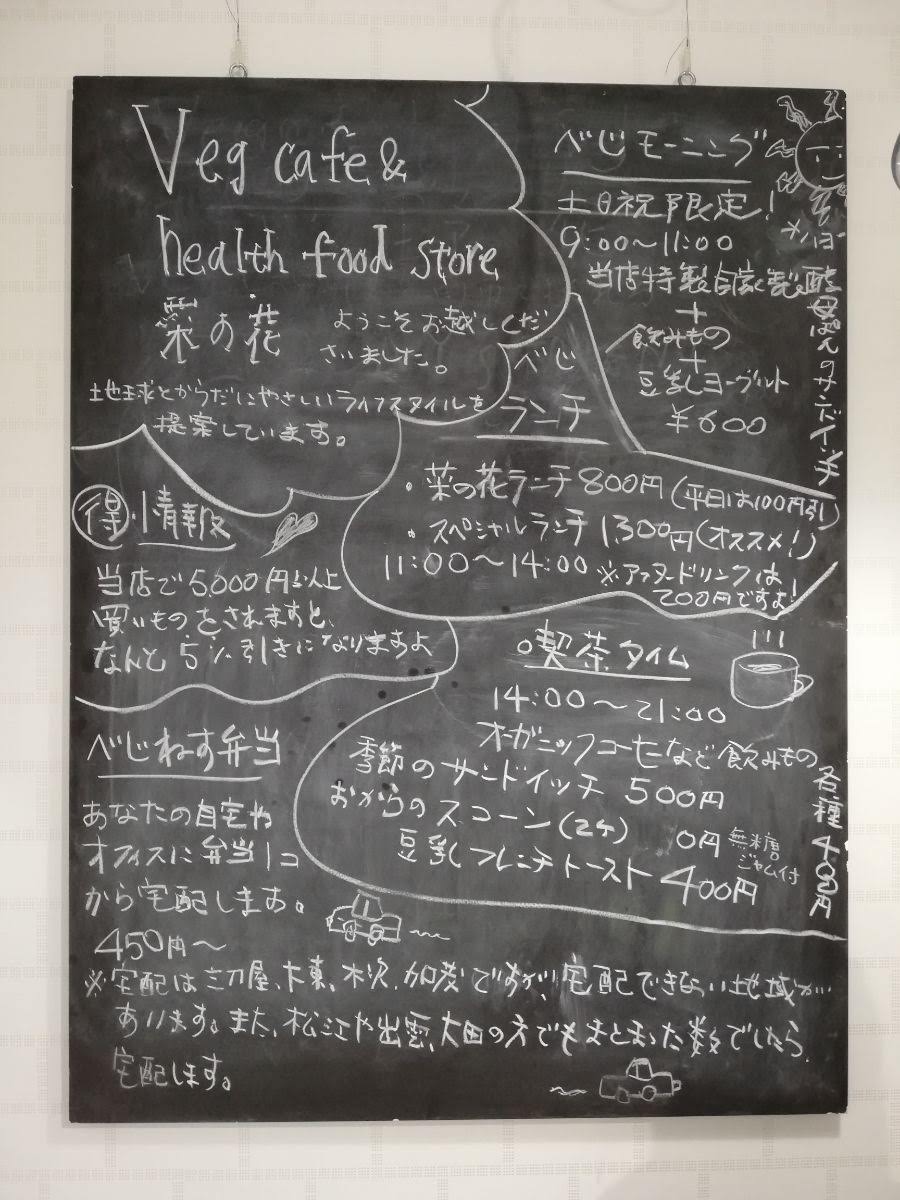 Veg cafe &
health food store
菜の花
ようこそお越しくだ
さいました。
地球とからだにやさしいライフスタイルを
提案しています。
べじモーニング
土日祝限定!
9:00〜11:00
当店特製自家製酵母ぱんのサンドイッチ
+
飲みもの
+
豆乳ヨーグルト
¥600
べじ
ランチ
・菜の花ランチ 800円(平日は100円引)
・スペシャルランチ 1300円(オススメ!)
11:00〜14:00 ※アフタードリンクは
200円ですよ!
得情報
当店で5,000円以上
買いものをされますと、
なんと5%引きになりますよ
喫茶タイム
14:00〜21:00
オーガニックコーヒなど飲みもの各種400円
季節のサンドイッチ 500円
おからのスコーン(2ケ) 0円 無糖
ジャム付
豆乳フレンチトースト 400円
べじねす弁当
あなたの自宅や
オフィスに弁当1コ
から宅配します。
450円〜
※宅配は三刀屋、木東、木次、加茂ですが、宅配できない地域が…
あります。また、松江や出雲、大田の方でもまとまった数でしたら
宅配します。